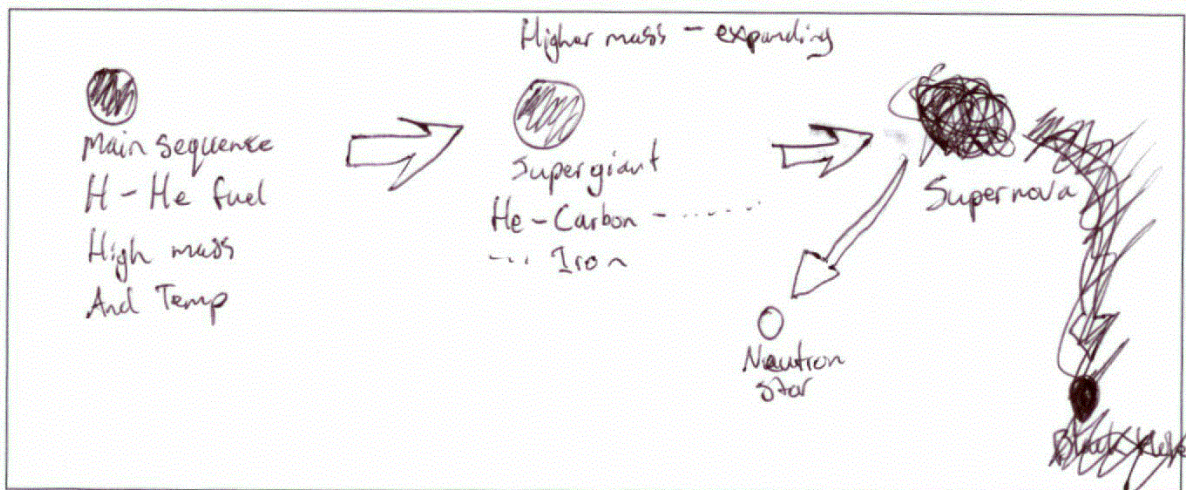 Higher mass - expanding
Main sequence
H - He fuel
High mass
And Temp
Supergiant
He - Carbon - ......
... Iron
Supernova
Neutron
star
Black Hole